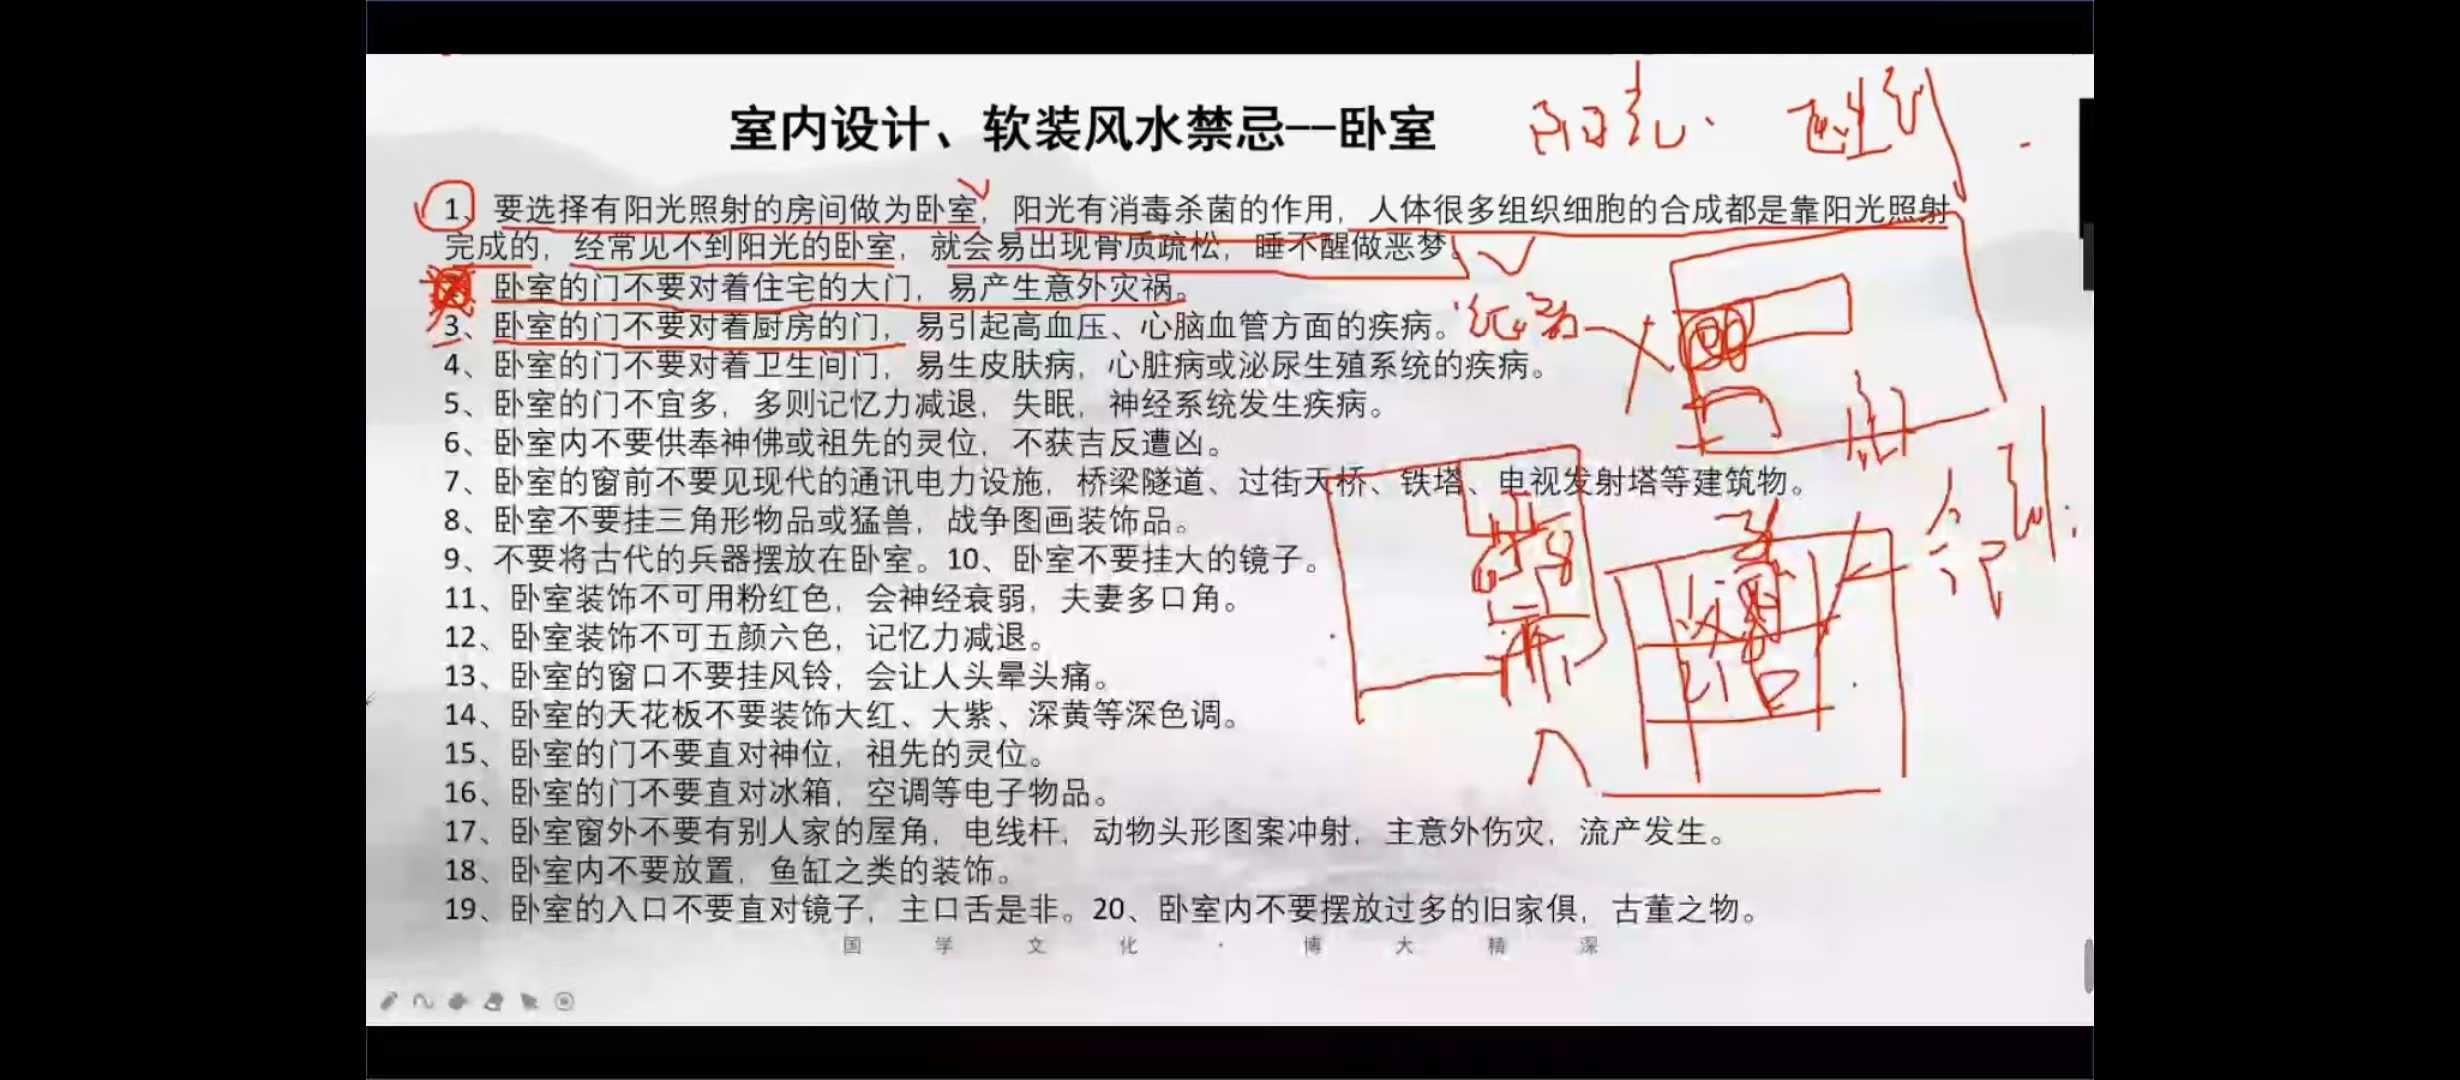 室内设计、软装风水禁忌--卧室
阳气
1、要选择有阳光照射的房间做为卧室，阳光有消毒杀菌的作用，人体很多组织细胞的合成都是靠阳光照射
完成的，经常见不到阳光的卧室，就会易出现骨质疏松，睡不醒做恶梦。
卧室的门不要对着住宅的大门，易产生意外灾祸。
3、卧室的门不要对着厨房的门，易引起高血压、心脑血管方面的疾病。
4、卧室的门不要对着卫生间门，易生皮肤病，心脏病或泌尿生殖系统的疾病。
5、卧室的门不宜多，多则记忆力减退，失眠，神经系统发生疾病。
6、卧室内不要供奉神佛或祖先的灵位，不获吉反遭凶。
7、卧室的窗前不要见现代的通讯电力设施，桥梁隧道、过街天桥、铁塔、电视发射塔等建筑物。
8、卧室不要挂三角形物品或猛兽，战争图画装饰品。
9、不要将古代的兵器摆放在卧室。10、卧室不要挂大的镜子。
11、卧室装饰不可用粉红色，会神经衰弱，夫妻多口角。
12、卧室装饰不可五颜六色，记忆力减退。
13、卧室的窗口不要挂风铃，会让人头晕头痛。
14、卧室的天花板不要装饰大红、大紫、深黄等深色调。
15、卧室的门不要直对神位，祖先的灵位。
16、卧室的门不要直对冰箱，空调等电子物品。
17、卧室窗外不要有别人家的屋角，电线杆，动物头形图案冲射，主意外伤灾，流产发生。
18、卧室内不要放置，鱼缸之类的装饰。
19、卧室的入口不要直对镜子，主口舌是非。20、卧室内不要摆放过多的旧家俱，古董之物。
国学文化·博大精深